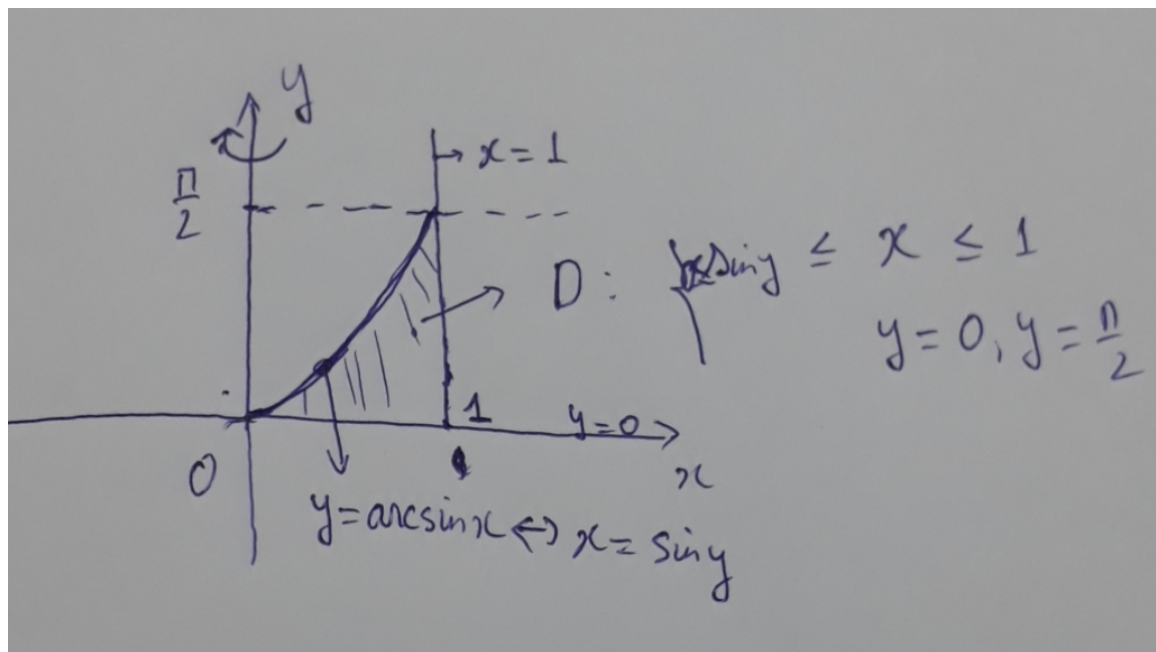 y
π/2
x = 1
D: { sin y ≤ x ≤ 1
y = 0, y = π/2
1
y = 0
0
x
y = arcsin x ↔ x = sin y